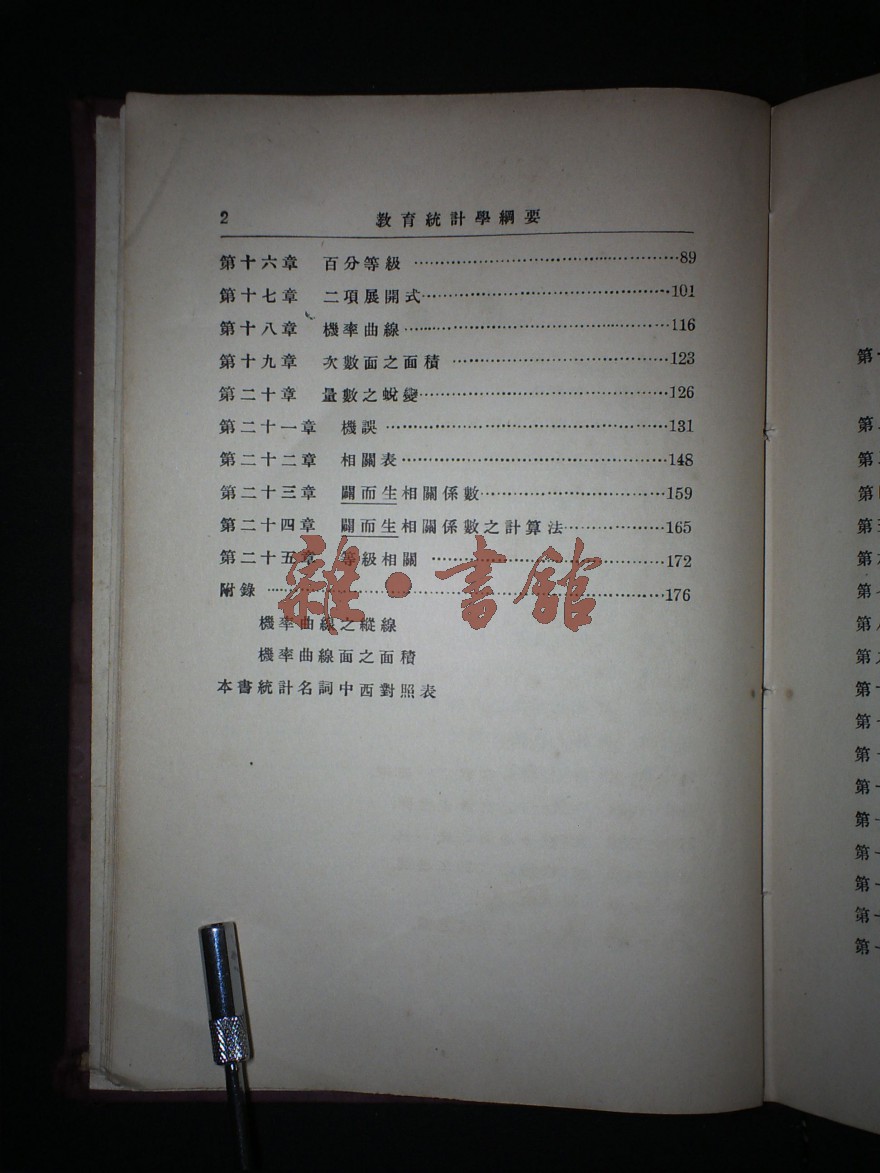 2 教育統計學綱要
第十六章 百分等級 ……89
第十七章 二項展開式……101
第十八章 機率曲線……116
第十九章 次數面之面積……123
第二十章 量數之蛻變……126
第二十一章 機誤……131
第二十二章 相關表……148
第二十三章 闢而生相關係數……159
第二十四章 闢而生相關係數之計算法……165
第二十五章 等級相關……172
附錄……176
機率曲線之縱線
機率曲線面之面積
本書統計名詞中西對照表
雜·書館
第
第
第
第
第
第
第
第
第
第
第
第
第
第
第
第
第
第